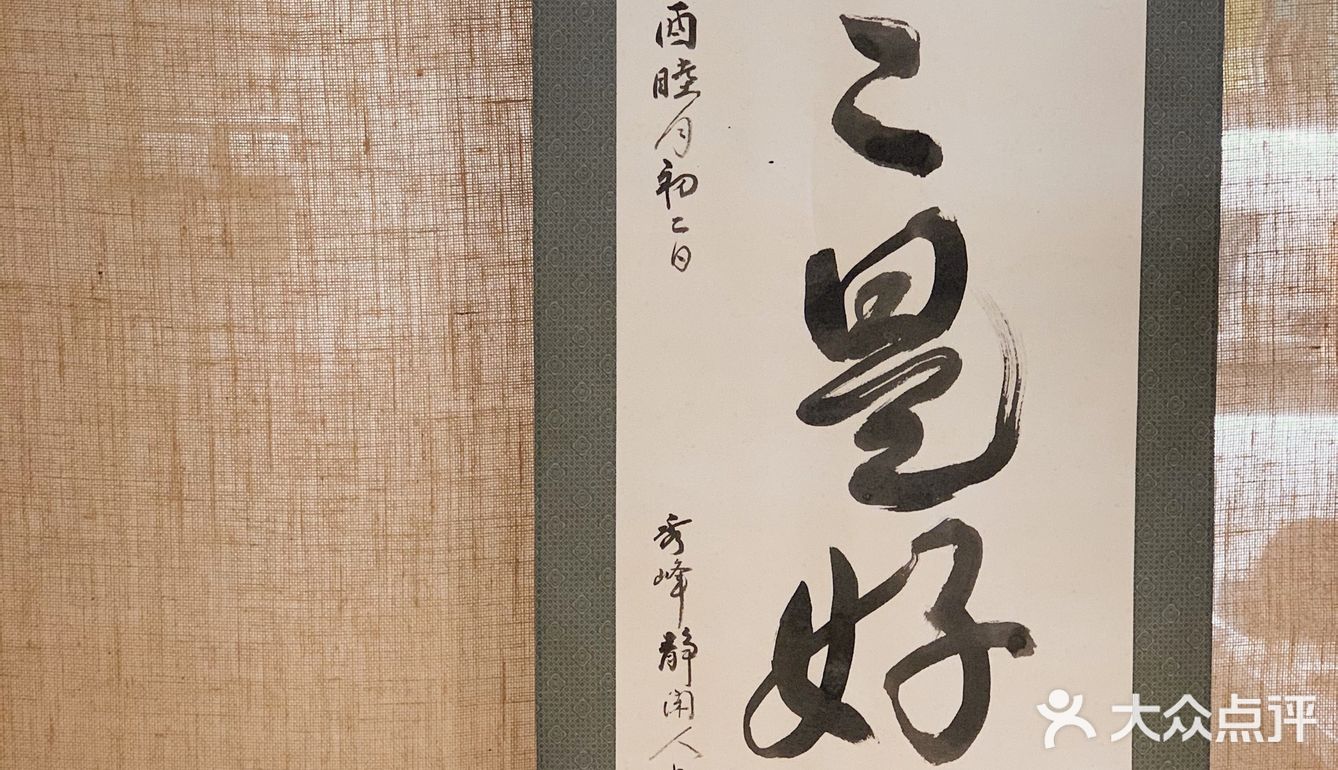 々是好
酉睦月初二日
秀峰静閑人
大众点评